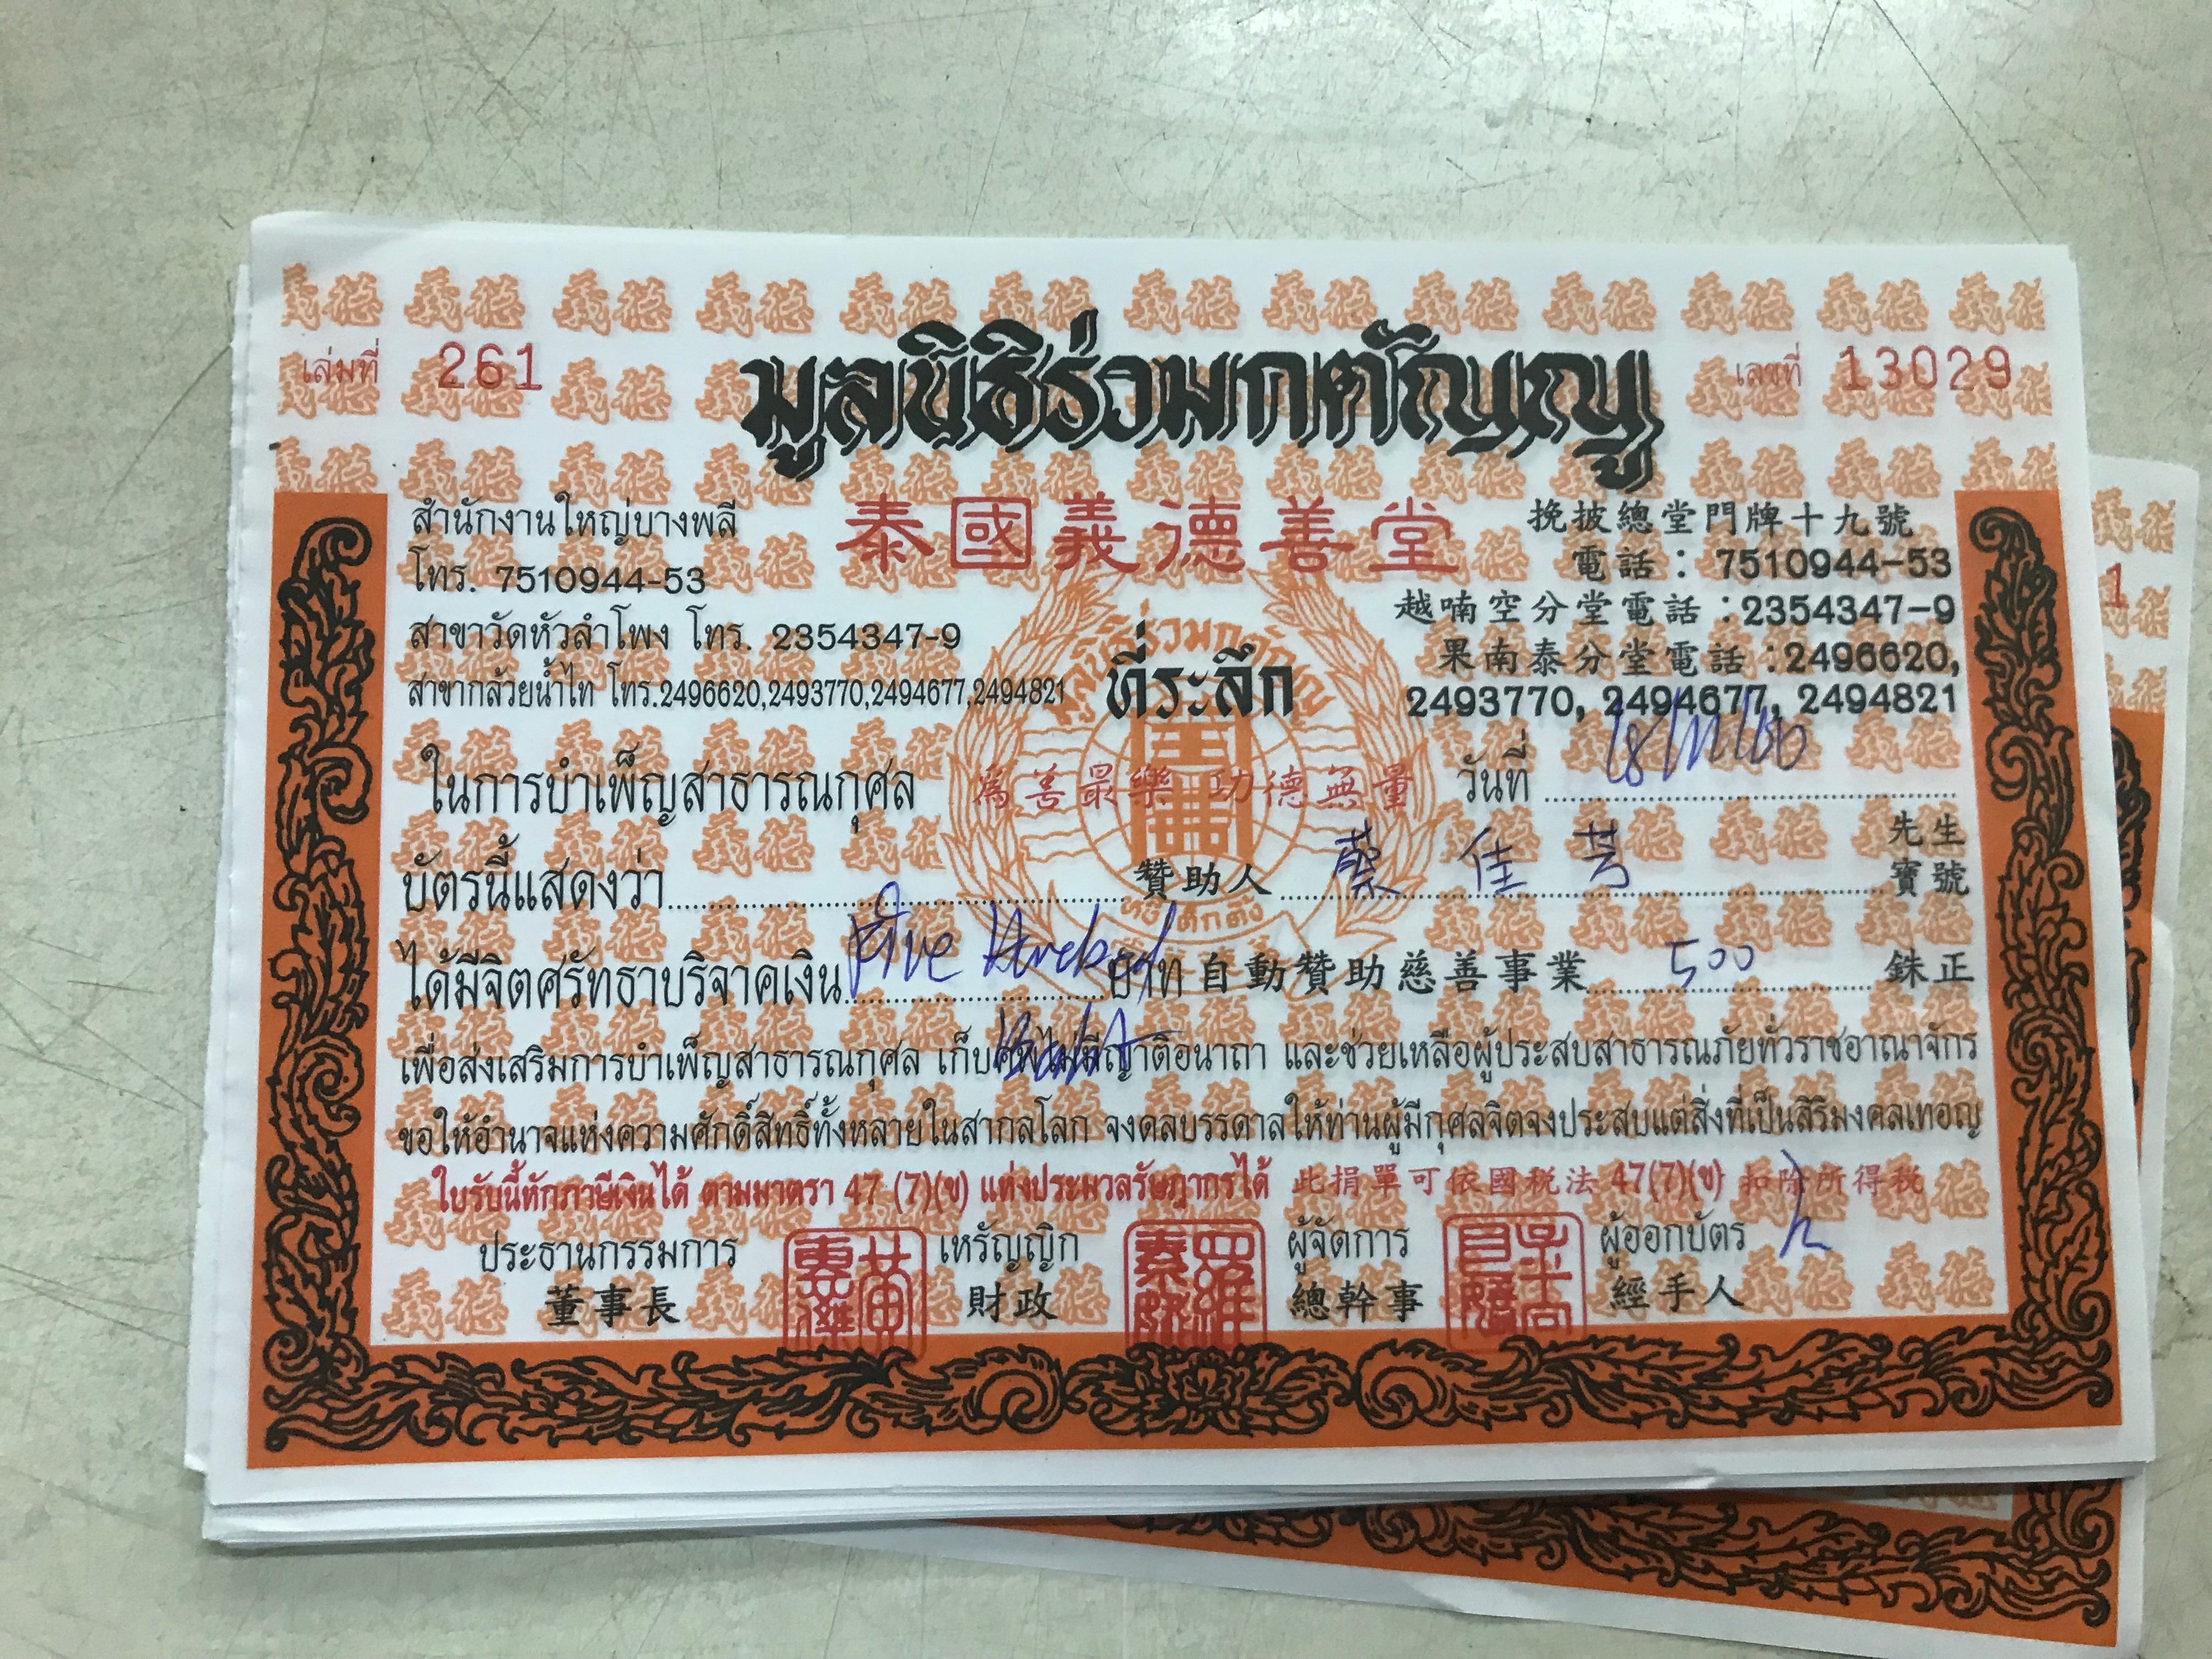 เล่มที่ 261
เลขที่ 13029
มูลนิธิร่วมกตัญญู
泰國義德善堂
สำนักงานใหญ่บางพลี
โทร. 7510944-53
สาขาวัดหัวลำโพง โทร. 2354347-9
สาขากล้วยน้ำไท โทร.2496620,2493770,2494677,2494821
ที่ระลึก
挽披總堂門牌十九號
電話：7510944-53
越喃空分堂電話：2354347-9
果南泰分堂電話：2496620,
2493770, 2494677, 2494821
ในการบำเพ็ญสาธารณกุศล 為善最樂 功德無量 วันที่
บัตรนี้แสดงว่า 贊助人 蔡佳芳 先生 寶號
ได้มีจิตศรัทธาบริจาคเงิน Five Hundred บาท 自動贊助慈善事業 500 銖正
Baht
เพื่อส่งเสริมการบำเพ็ญสาธารณกุศล เก็บศพไม่มีญาติอนาถา และช่วยเหลือผู้ประสบสาธารณภัยทั่วราชอาณาจักร
ขอให้อำนาจแห่งความศักดิ์สิทธิ์ทั้งหลายในสากลโลก จงดลบรรดาลให้ท่านผู้มีกุศลจิตจงประสบแต่สิ่งที่เป็นสิริมงคลเทอญ
ใบรับนี้หักภาษีเงินได้ ตามมาตรา 47 (7)(ข) แห่งประมวลรัษฎากรได้ 此捐單可依國税法 47(7)(ข) 扣除所得税
ประธานกรรมการ เหรัญญิก ผู้จัดการ ผู้ออกบัตร
董事長 財政 總幹事 經手人